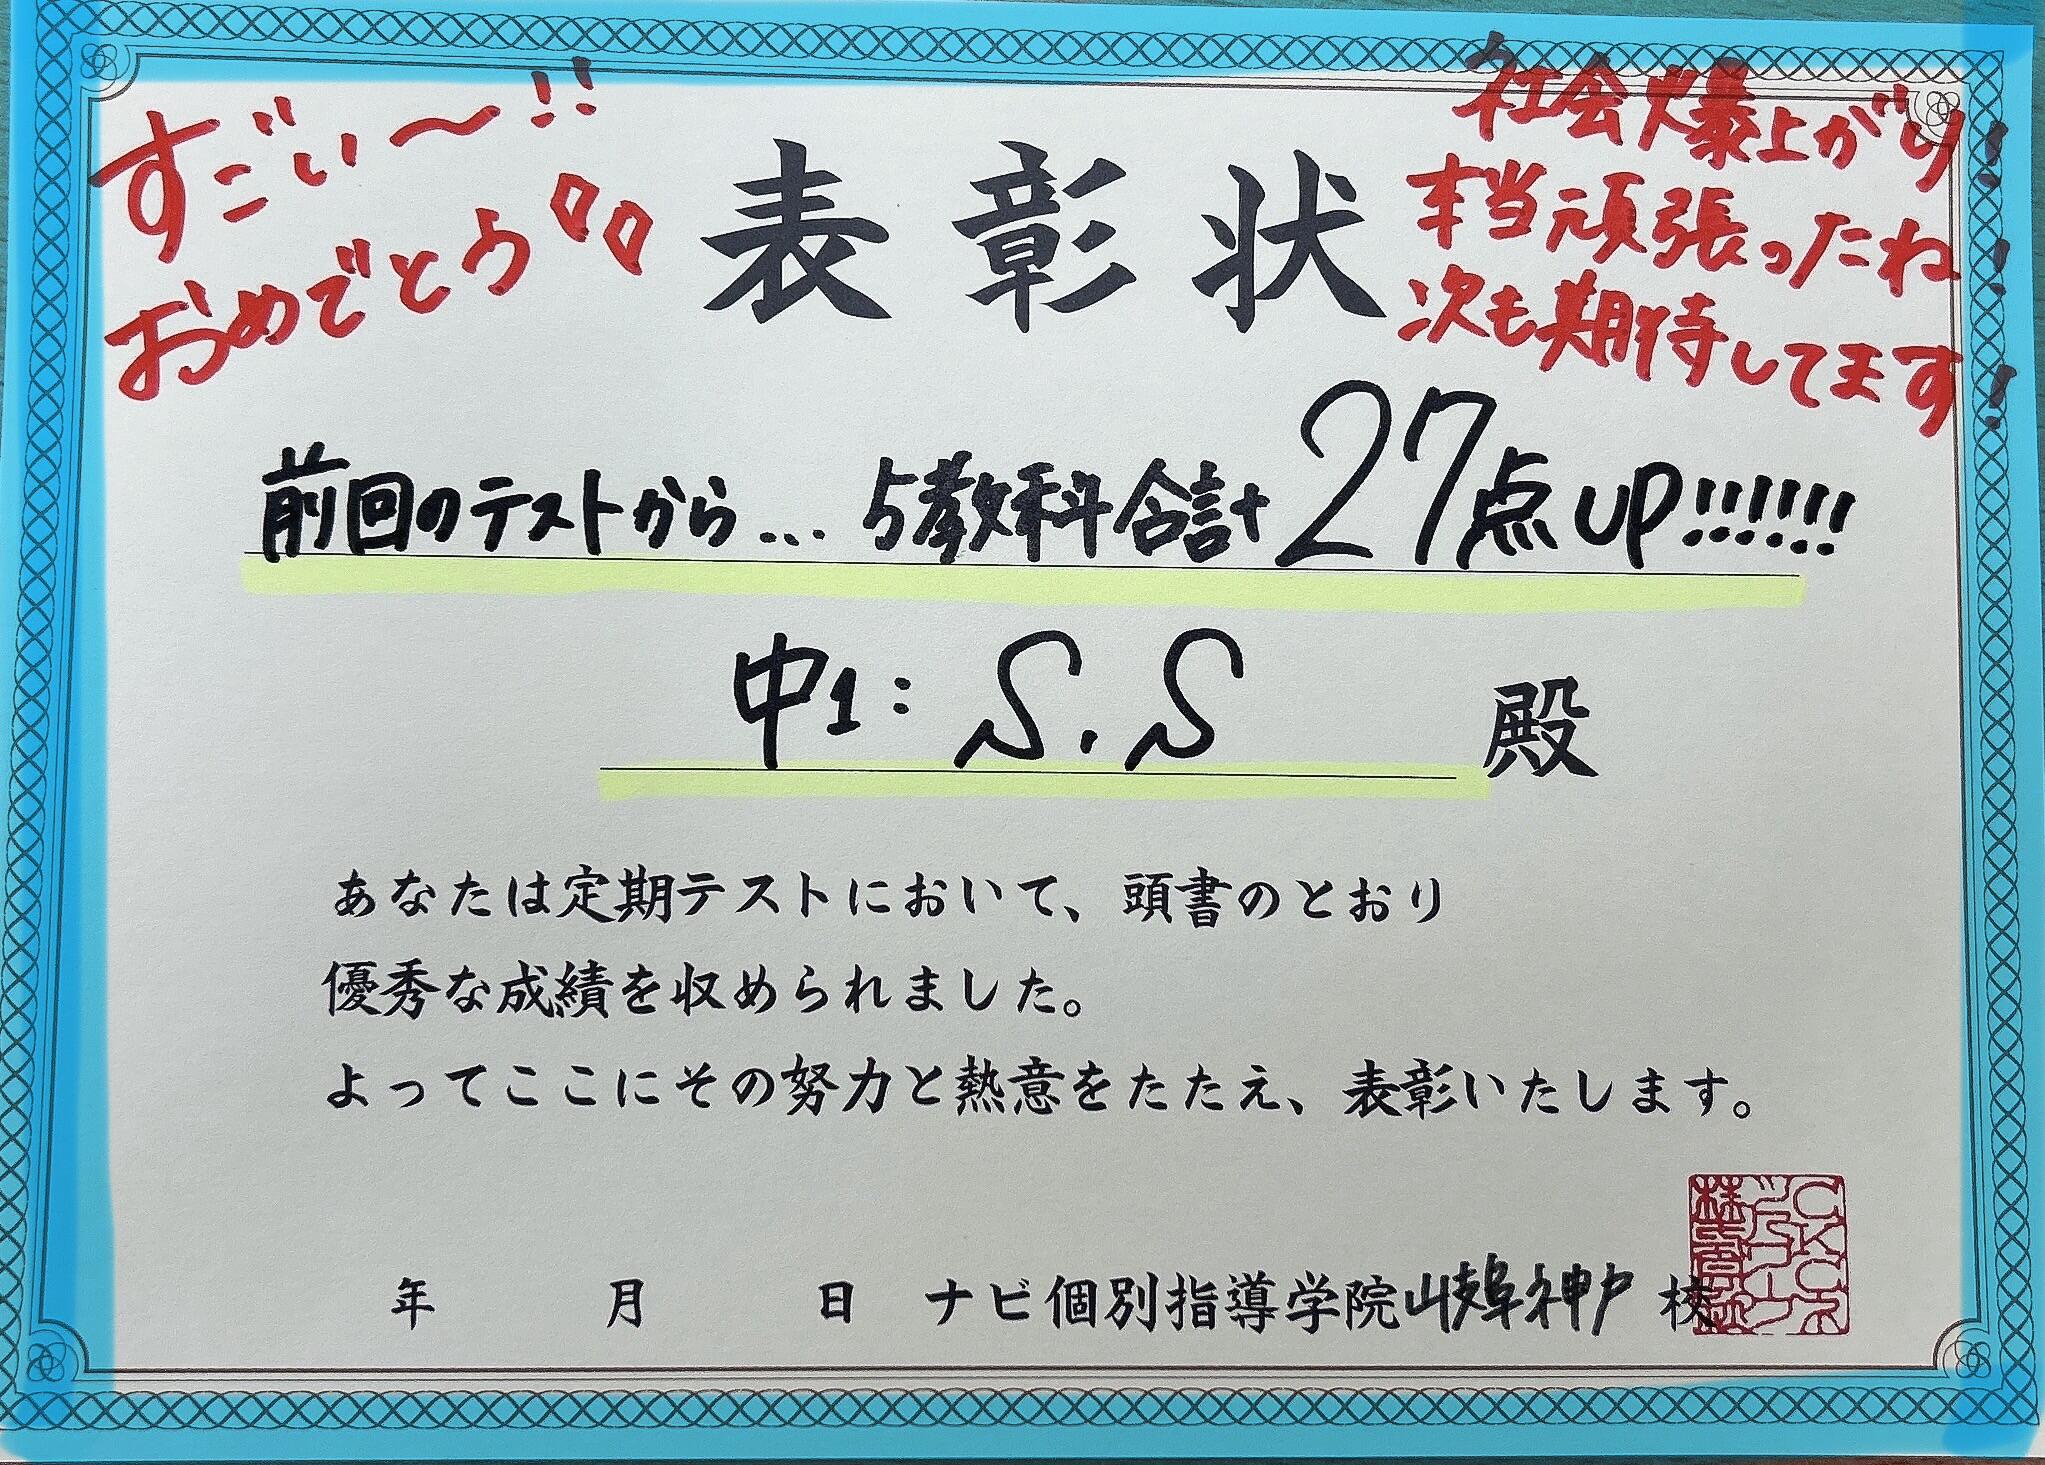 すごい〜!!
おめでとう
社会爆上がり!
本当頑張ったね!
次も期待してます!
表彰状
前回のテストから... 5教科合計27点UP!!!!!!
中1: S.S 殿
あなたは定期テストにおいて、頭書のとおり
優秀な成績を収められました。
よってここにその努力と熱意をたたえ、表彰いたします。
年 月 日 ナビ個別指導学院岐阜神戸校